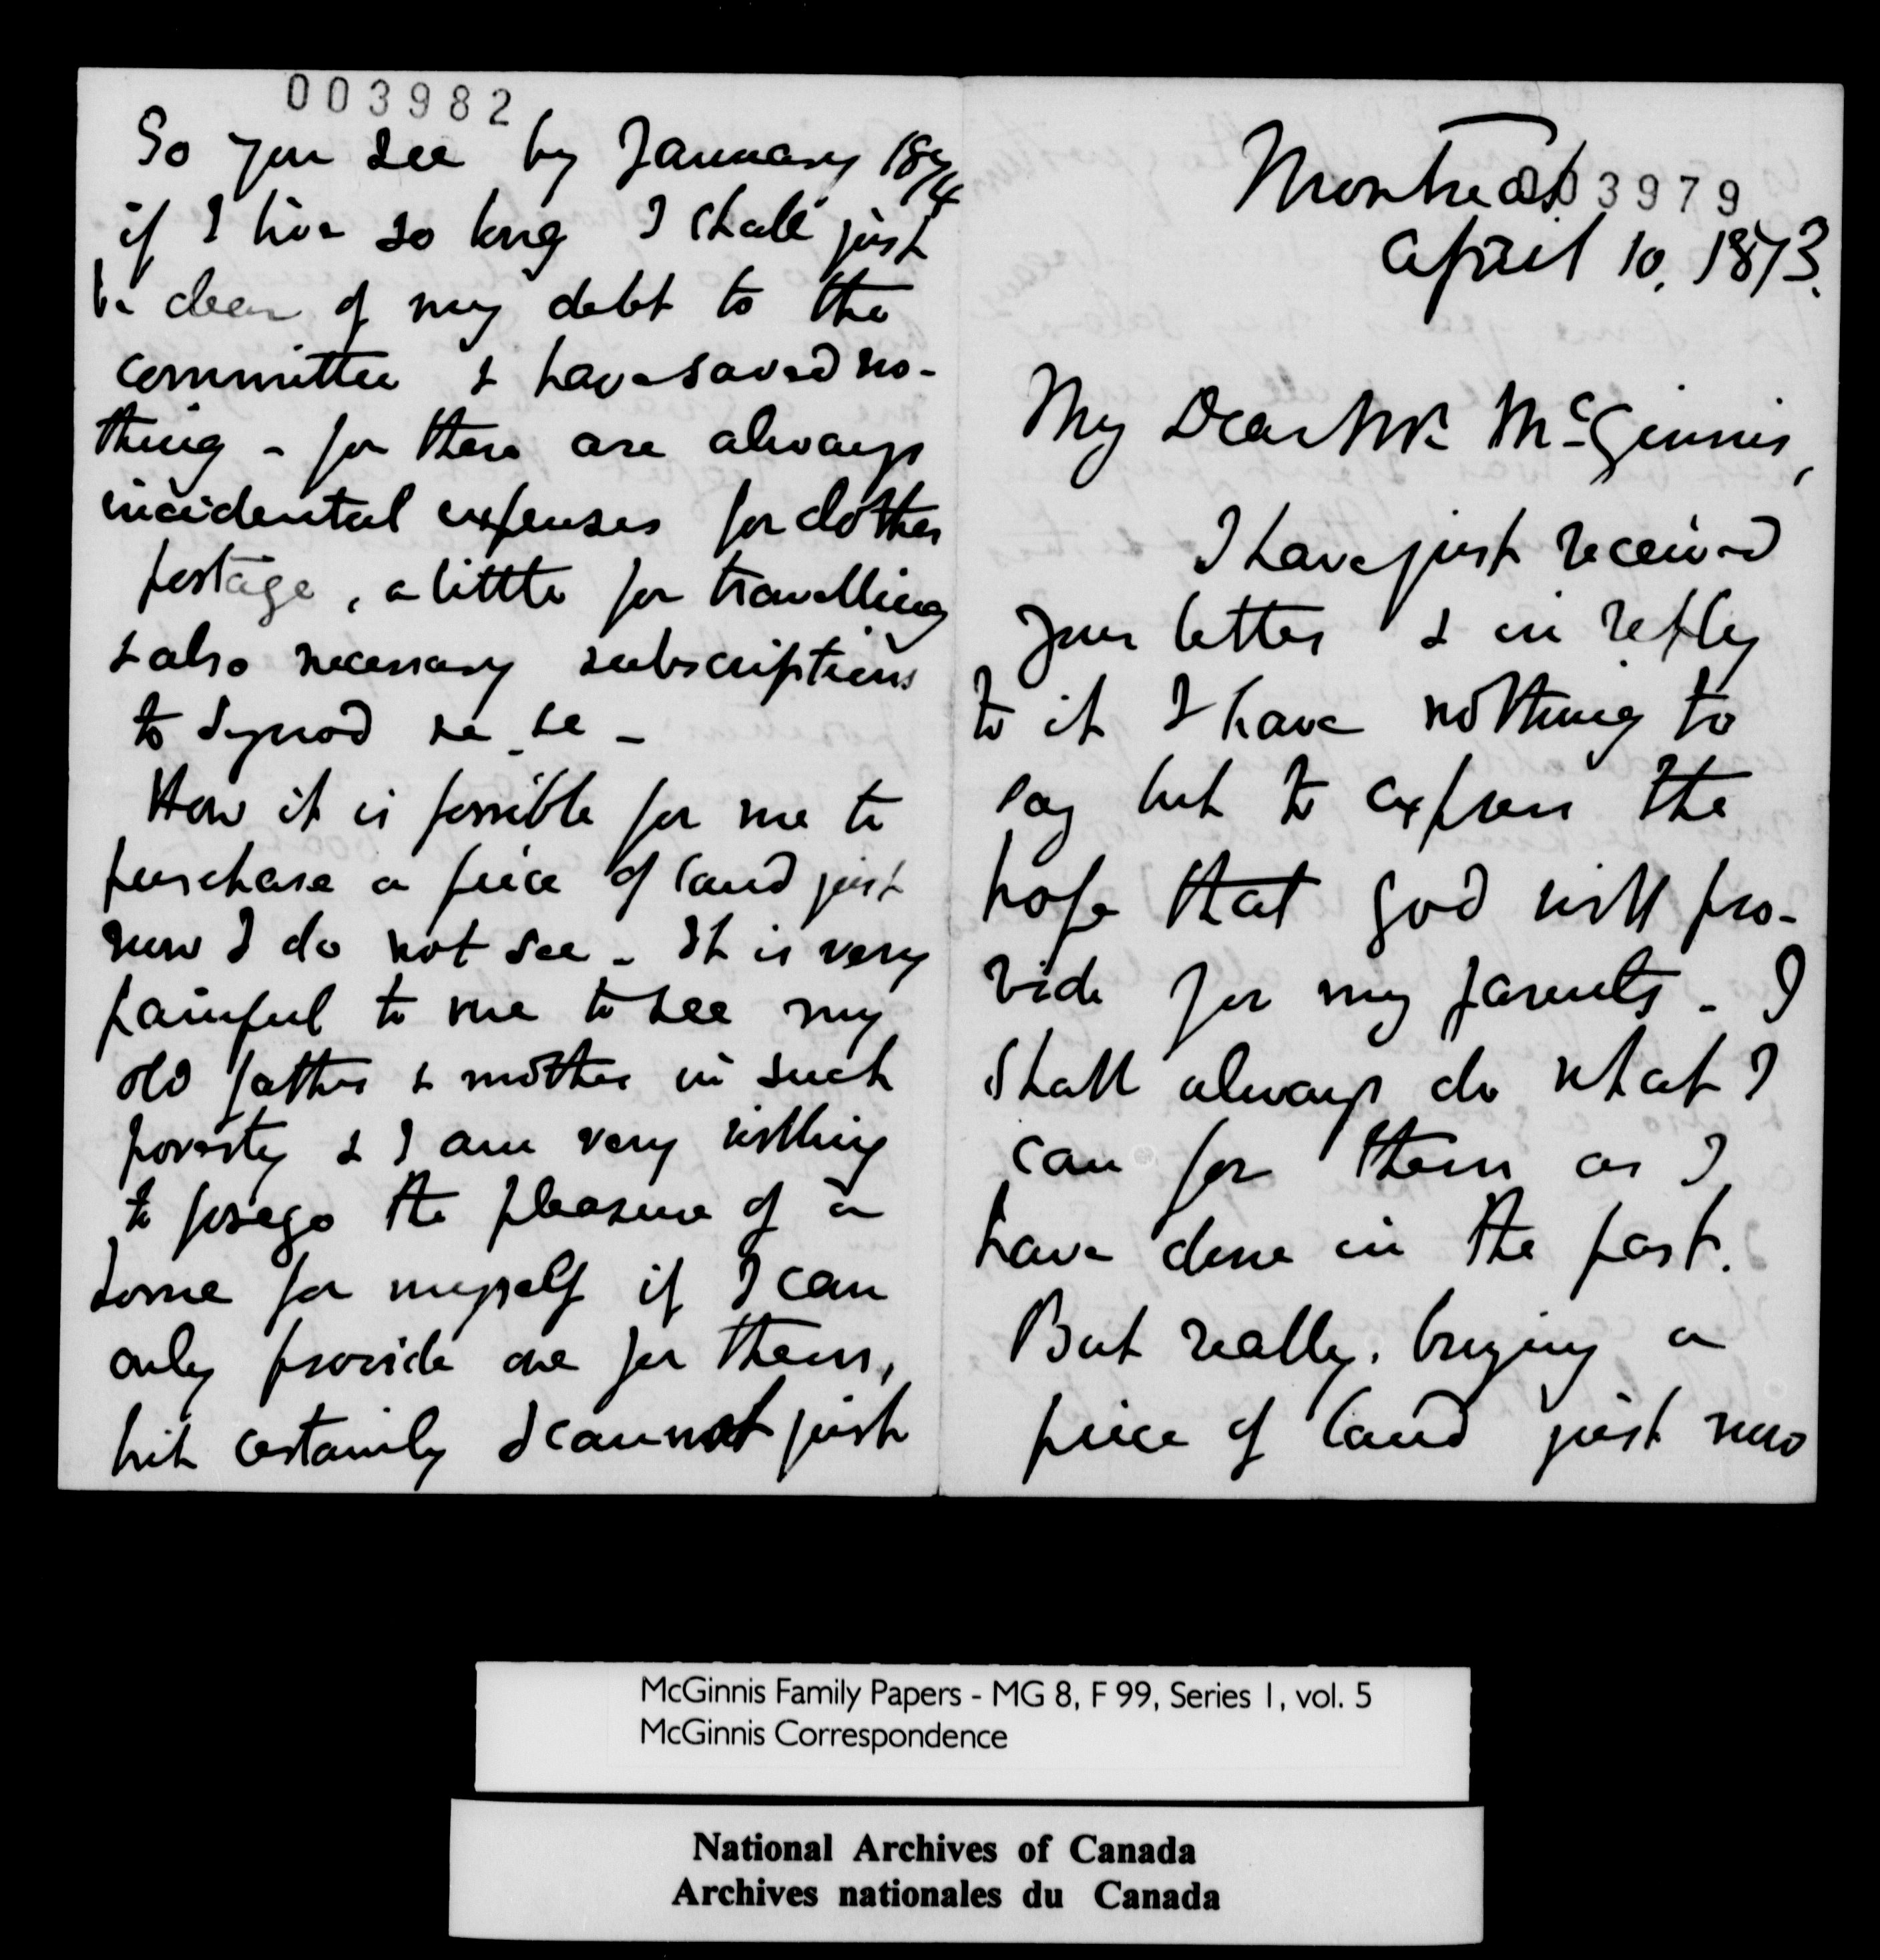 003982
So you see by January 1874
if I live so long I shall just
be clear of my debt to the
committee & have saved no-
thing - for there are always
incidental expenses for clothes
postage, a little for travelling
& also necessary subscriptions
to Synod &c &c -
How it is possible for me to
purchase a piece of land just
now I do not see - It is very
painful to me to see my
old father & mother in such
poverty & I am very willing
to forego the pleasure of a
home for myself if I can
only provide one for them,
but certainly I cannot just
003979
Montreal
April 10, 1873.
My Dear Mr. McGinnis,
I have just received
your letter & in reply
to it I have nothing to
say but to express the
hope that God will pro-
vide for my parents - I
shall always do what I
can for them as I
have done in the past.
But really, buying a
piece of land just now
McGinnis Family Papers - MG 8, F 99, Series 1, vol. 5
McGinnis Correspondence
National Archives of Canada
Archives nationales du Canada